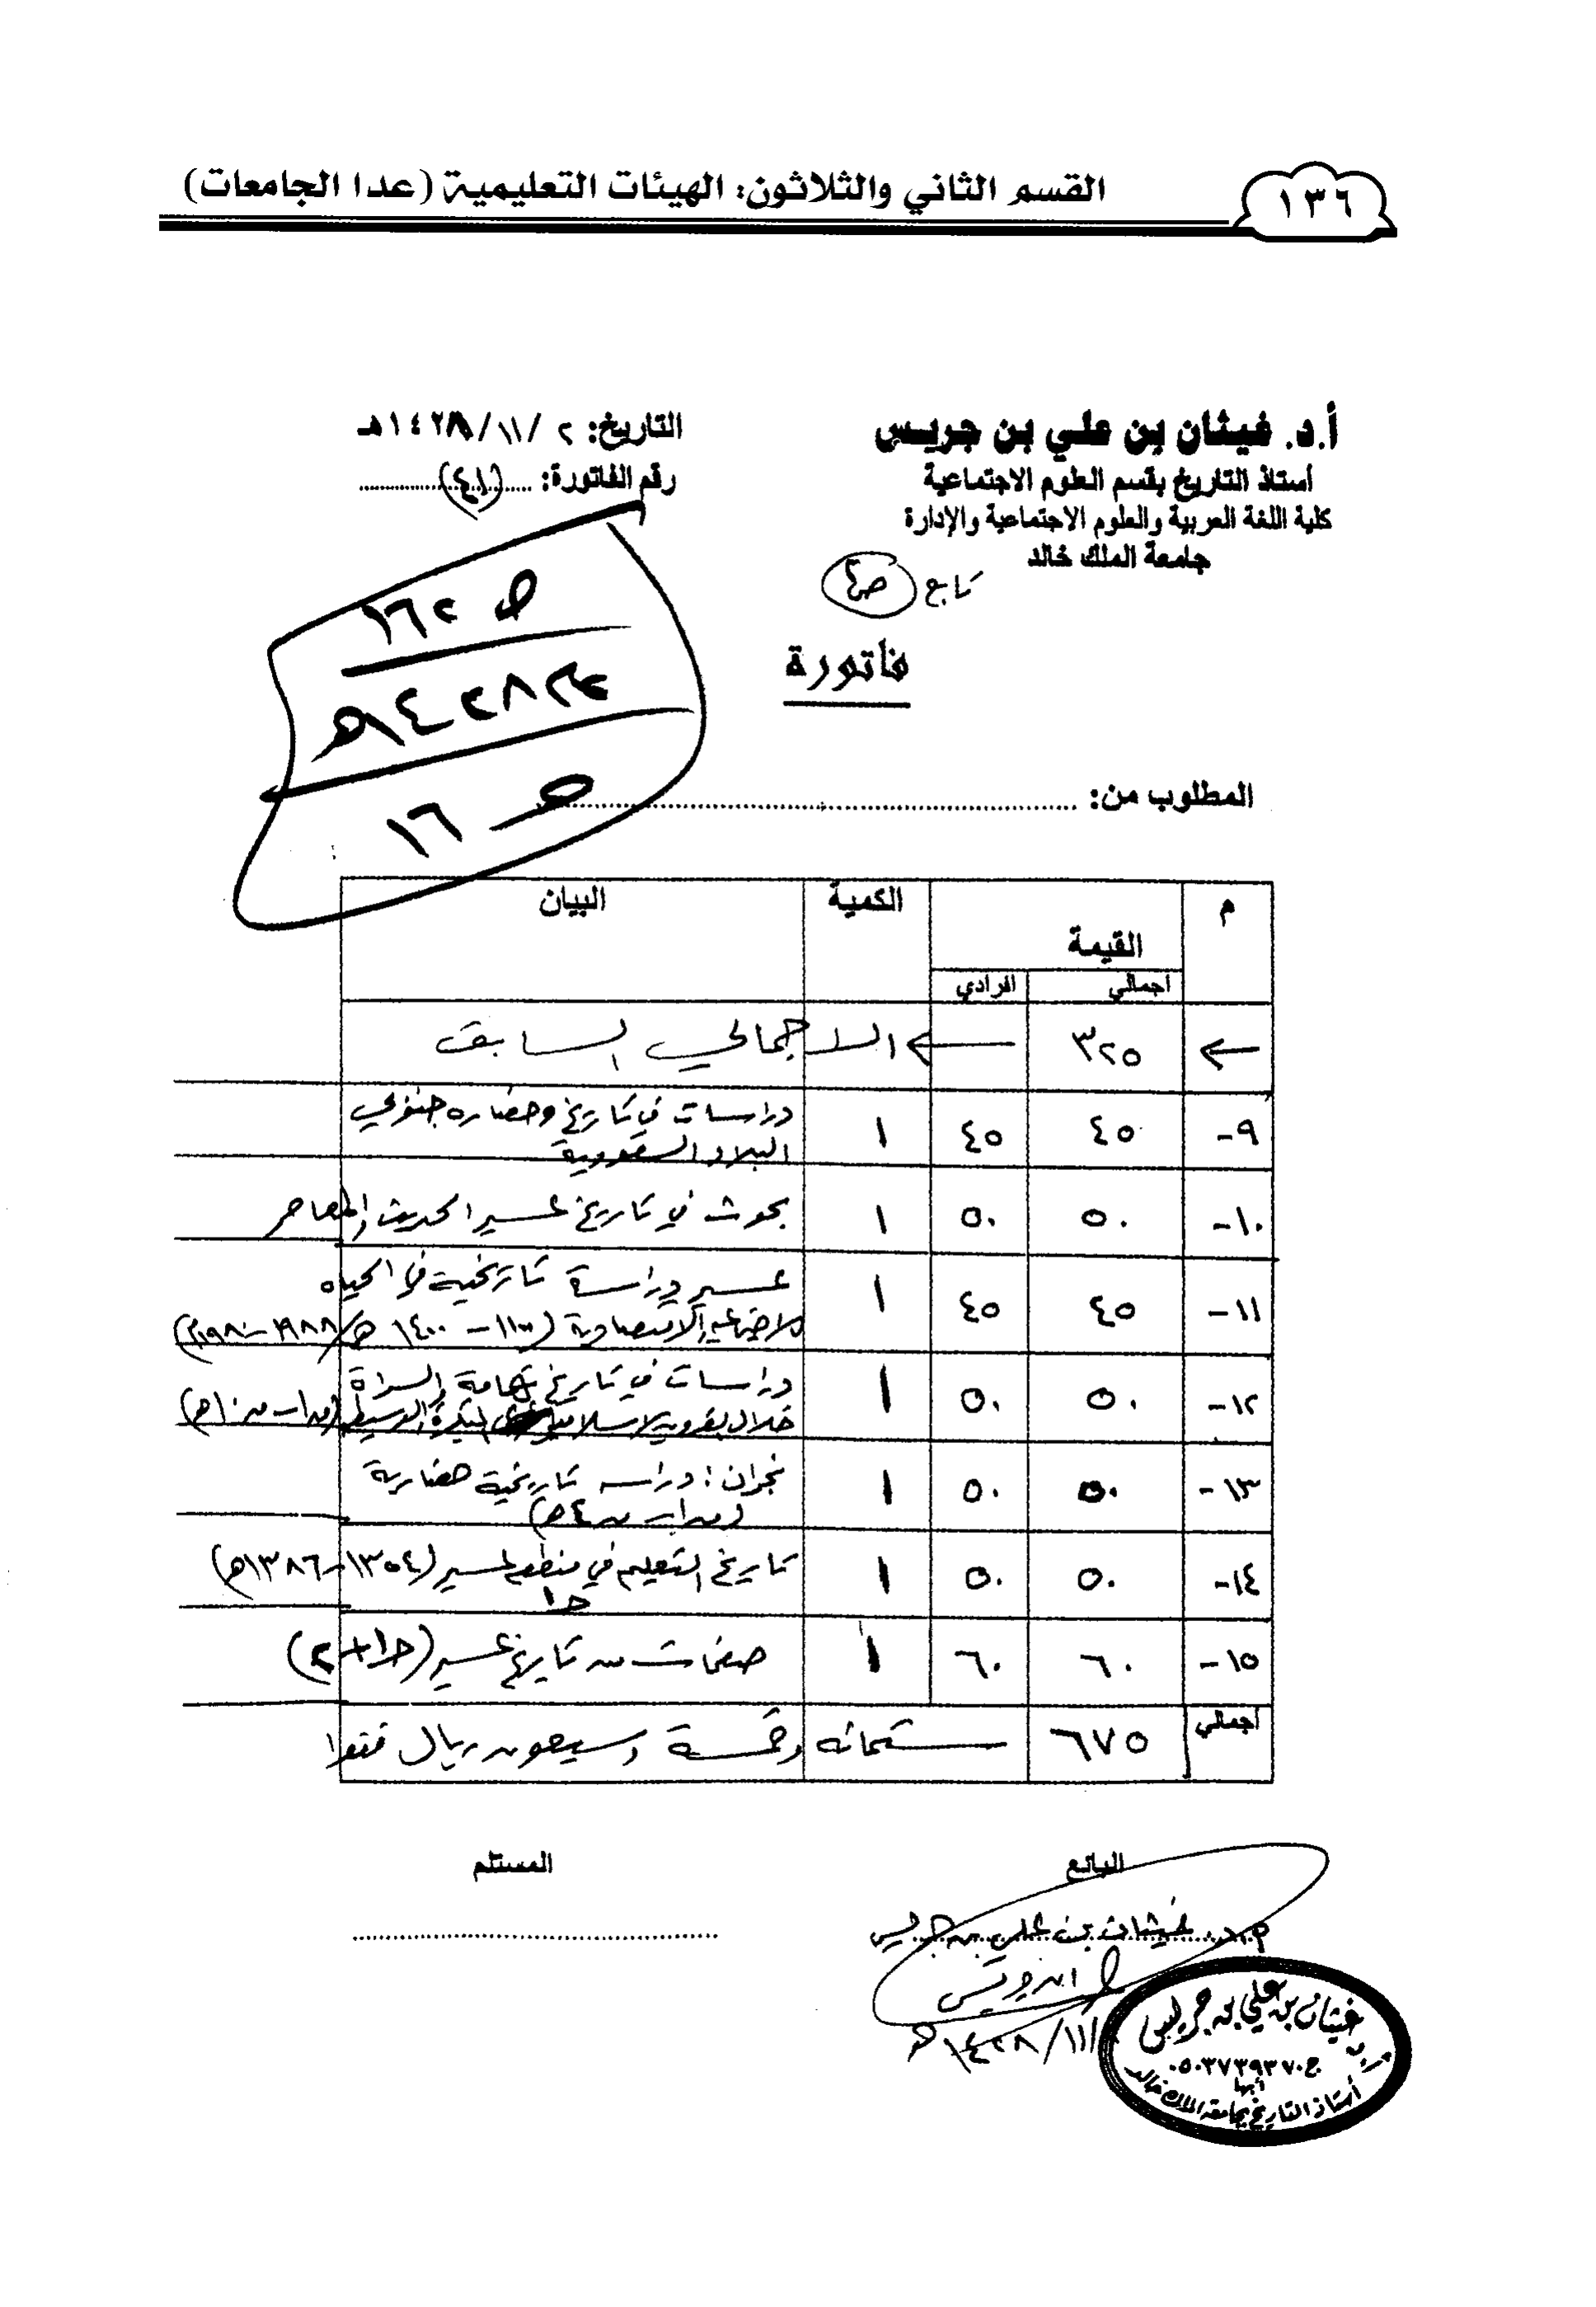 ١٣٦
القسم الثاني والثلاثون: الهيئات التعليمية (عدا الجامعات)
أ.د. غيثان بن علي بن جريس
أستاذ التاريخ بقسم العلوم الاجتماعية
كلية اللغة العربية والعلوم الاجتماعية والإدارة
جامعة الملك خالد
التاريخ: ٢ /١١/ ١٤٢٨هـ
رقم الفاتورة: (٤١)
تابع
ص ١٦٢
١٤٢٨هـ
١٦
فاتورة
المطلوب من:
م القيمة الكمية البيان
اجمالي افرادي
٣٢٥ الاجمالي السابق
٩- ٤٥ ٤٥ ١ دراسات في تاريخ وحضارة جنوبي
البلاد السعودية
١٠- ٥٠ ٥٠ ١ بحوث في تاريخ عسير الحديث والمعاصر
١١- ٤٥ ٤٥ ١ عسير دراسة تاريخية في الحياه
الاجتماعية والاقتصادية (١١٠٠-١٤٠٠هـ/١٦٨٨-١٩٨٠م)
١٢- ٥٠ ٥٠ ١ دراسات في تاريخ تهامة والسراة
خلال القرون الاسلامية المبكرة والوسيطة
١٣- ٥٠ ٥٠ ١ نجران: دراسه تاريخية حضارية
١٤- ٥٠ ٥٠ ١ تاريخ التعليم في منطقة عسير (١٣٥٤-١٣٨٦هـ)
ج١
١٥- ٦٠ ٦٠ ١ صفحات من تاريخ عسير (ج١+٢)
اجمالي ٦٧٥ ستمائه وخمسة وسبعون ريال فقط
البائع
المستلم
أ.د. غيثان بن علي بن جريس
ابن جريس
/١١/ ١٤٢٨هـ
أ.د غيثان بن علي بن جريس
ج ٠٥٠٣٧٣٩٣٧٠
أبها
أستاذ التاريخ بجامعة الملك خالد